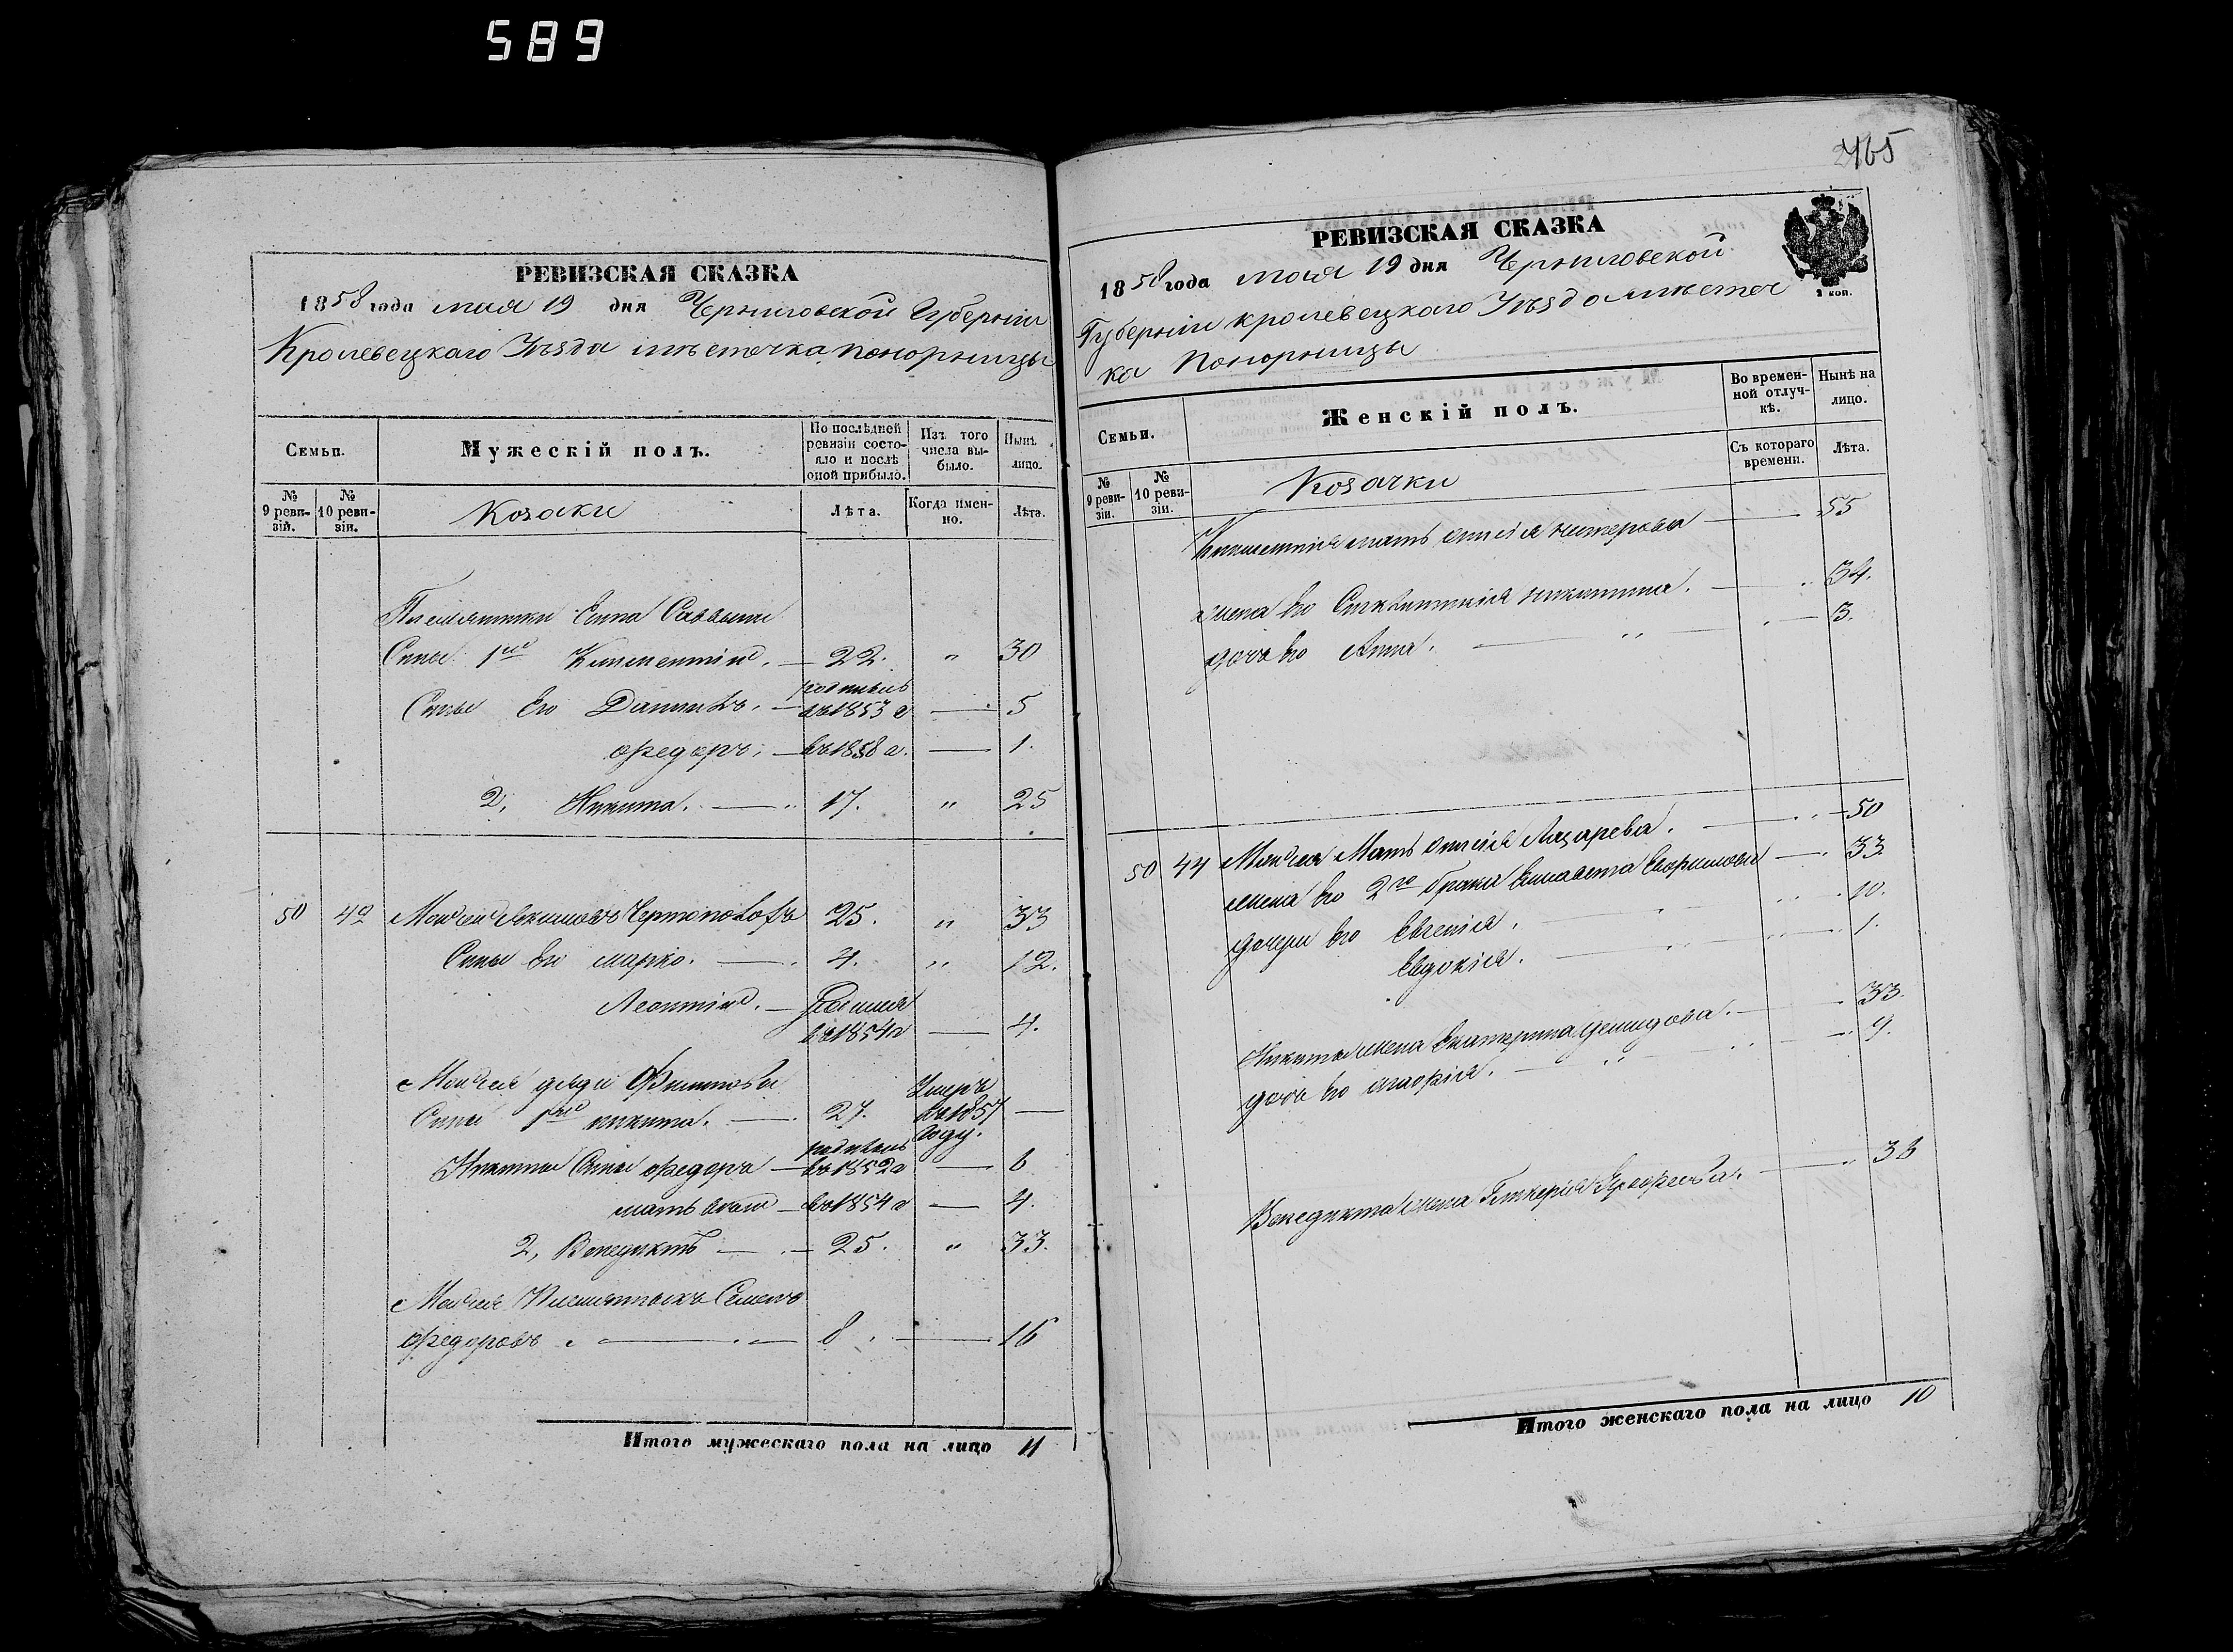 589
РЕВИЗСКАЯ СКАЗКА
1858 года мая 19 дня Черниговской Губерніи
Кролевецкаго Уѣзда мѣстечка Понорницы
Семьи.
Мужескій полъ.
По послѣдней ревизіи состояло и послѣ оной прибыло.
Изъ того числа выбыло.
Нынѣ лицо.
№ 9 ревизій.
№ 10 ревизіи.
Козаки
Лѣта.
Когда именно.
Лѣта.
Племянники Савыны
Сыны 1й Климентій. 22. " 30
Сыны его Даніилъ. родился въ 1853 г 5
Федоръ. въ 1858 г. 1.
2, Никита. 17. " 25
50 49 Моисей 25. " 33
Сыны его Марко. 4. " 12.
Леонтій. въ 1854 г 4.
Моисея дяди Филипова
Сыны 1й Никита. 27. Умеръ въ 1857 году.
Никиты Сыны Федоръ родился въ 1852 г 6
въ 1854 г 4.
2, Венедиктъ 25. " 33.
Моисея Племянникъ Семенъ
Федоровъ 8. 16
Итого мужескаго пола на лицо 11
465
РЕВИЗСКАЯ СКАЗКА
1858 года мая 19 дня Черниговской
2 коп.
Губерніи Кролевецкаго Уѣзда мѣстеч
ка Понорницы
Семьи.
Женскій полъ.
Во временной отлучкѣ.
Нынѣ на лицо.
№ 9 ревизіи.
№ 10 ревизіи.
Козачки
Съ котораго времени.
Лѣта.
Климентія мать 55
жена его Никитина. 34.
дочь его Анна. " 3.
50 44 Моисея Мать Лазарева. 50
жена его 2го брака Елисавета 33
дочери его Евгенія. 10.
Евдокія. 1.
Никиты жена Екатерина Демидова. 33.
дочь его 9.
Венедикта жена Гликерія 33
Итого женскаго пола на лицо 10